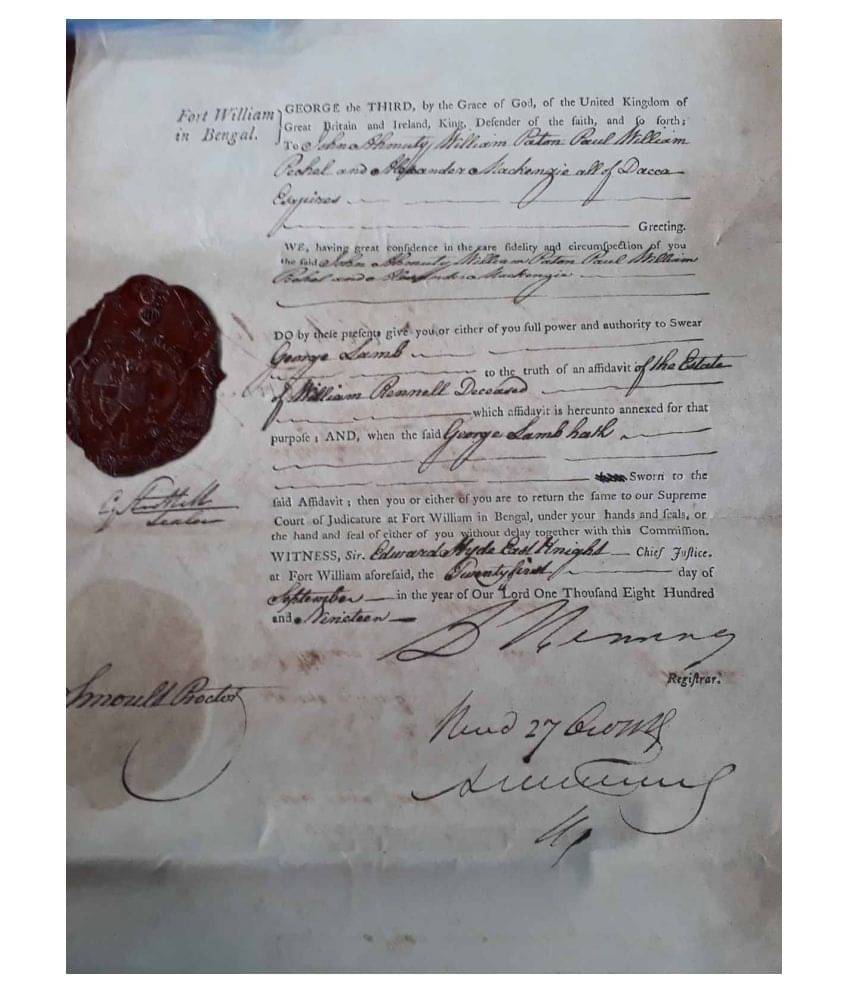 Fort William
in Bengal.
GEORGE the THIRD, by the Grace of God, of the United Kingdom of
Great Britain and Ireland, King, Defender of the faith, and ſo forth;
To John Ahmuty William Paton Paul William
Pechel and Alexander Mackenzie all of Dacca
Esquires
Greeting.
WE, having great confidence in the care fidelity and circumſpection of you
the ſaid John Ahmuty William Paton Paul William
Pechel and Alexander Mackenzie
DO by theſe preſents give you or either of you full power and authority to Swear
George Lamb
to the truth of an affidavit of the Estate
of William Rennell Deceased
which affidavit is hereunto annexed for that
purpoſe; AND, when the ſaid George Lamb hath
Sworn to the
ſaid Affidavit; then you or either of you are to return the ſame to our Supreme
Court of Judicature at Fort William in Bengal, under your hands and ſeals, or
the hand and ſeal of either of you without delay together with this Commiſſion.
WITNESS, Sir. Edward Hyde East Knight Chief Juſtice.
at Fort William aforeſaid, the Twenty first day of
September in the year of Our Lord One Thouſand Eight Hundred
and Nineteen
Regiſtrar.
Sealer
Smoult Proctor
27